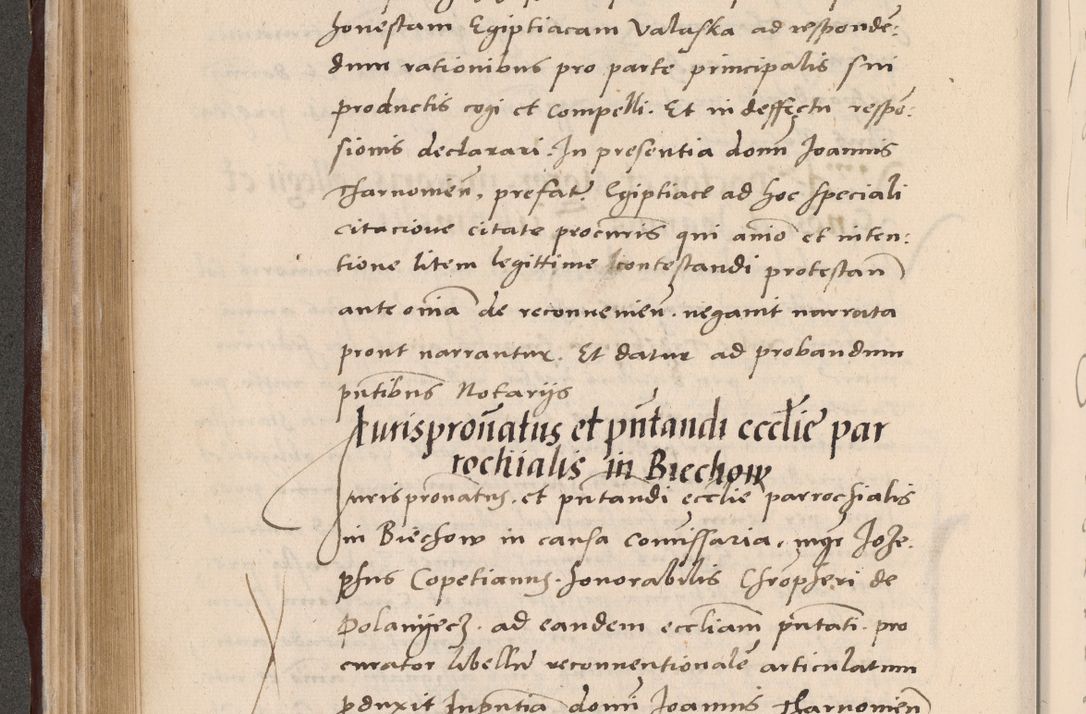 honestam Egiptiacam Valaska ad responden:
dum rationibus pro parte principalis sui
productis cogi et compelli. Et in deffectu respon:
sionis declarari. In presentia domi Joannis
Tharnowien, prefate Egiptiace ad hoc speciali
citacione citate procuris qui animo et inten:
tione litem legittime contestandi protestan
ante omia de reconvenien. negavit narrata
prout narrantur. Et datur ad probandum
pntibus Notarijs
Jurispronatus et pntandi ecclie par
rochialis in Biechow
Jurispronatus. et pntandi ecclie parrochialis
in Biechow in causa comissaria, mgr Jose.
phus Copetianus. honorabilis Chropheri de
Polanyecz. ad eandem eccliam pntati. pro
curator libellu reconventionale articulatum
produxit In pntia domi Joannis Tharnowien